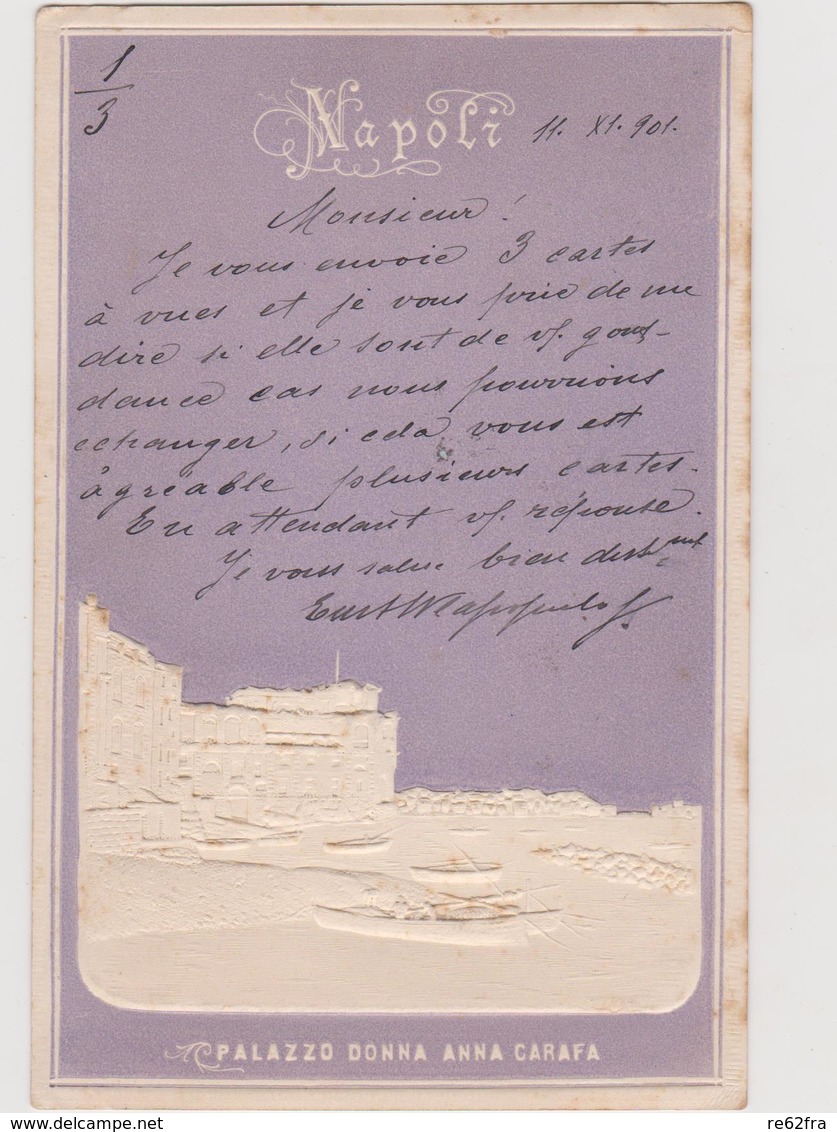 1/3
Napoli 11. XI. 901.
Monsieur!
Je vous envoie 3 cartes
à vues et je vous prie de me
dire si elle sont de vf. gout-
dance cas nous pourrions
echanger, si cela vous est
àgréable plusieurs cartes.
En attendant vf. réponse.
Je vous salue bien
PALAZZO DONNA ANNA CARAFA
delcampe.net
re62fra